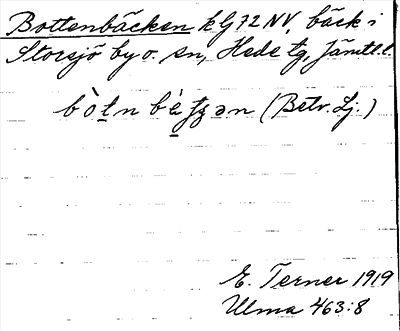 Bottenbäcken kG 72 NV, bäck i
Storsjö by o. sn, Hede tg, Jämtl. l.
(Betv. Lj.)
E. Terner 1919
Ulma 463:8